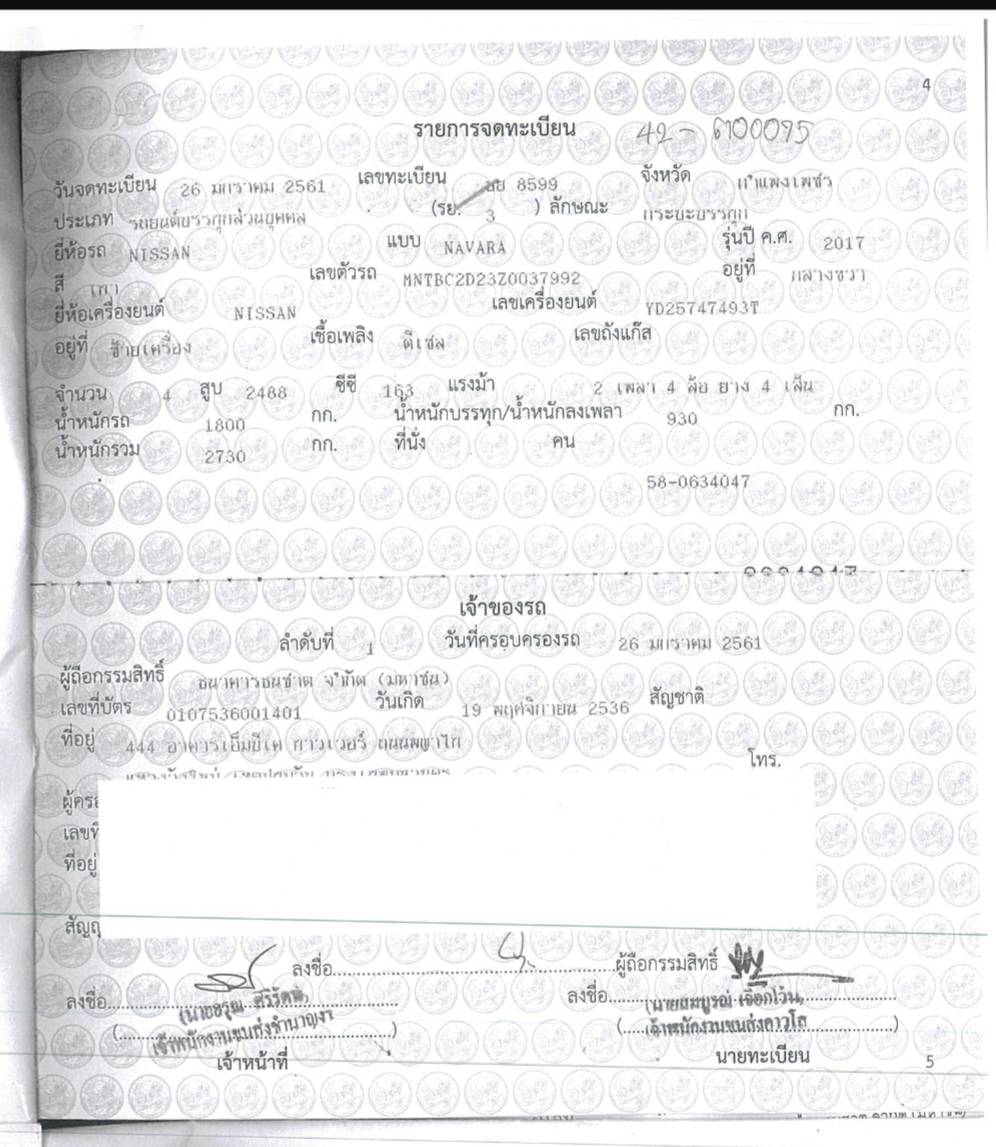 4
รายการจดทะเบียน 42 - 6100095
วันจดทะเบียน 26 มกราคม 2561 เลขทะเบียน 8599 จังหวัด กำแพงเพชร
ประเภท รถยนต์บรรทุกส่วนบุคคล (รย. 3 ) ลักษณะ กระบะบรรทุก
ยี่ห้อรถ NISSAN แบบ NAVARA รุ่นปี ค.ศ. 2017
สี เทา เลขตัวรถ MNTBC2D23Z0037992 อยู่ที่ กลางขวา
ยี่ห้อเครื่องยนต์ NISSAN เลขเครื่องยนต์ YD25747493T
อยู่ที่ ซ้ายเครื่อง เชื้อเพลิง ดีเซล เลขถังแก๊ส
จำนวน 4 สูบ 2488 ซีซี 163 แรงม้า 2 เพลา 4 ล้อ ยาง 4 เส้น
น้ำหนักรถ 1800 กก. น้ำหนักบรรทุก/น้ำหนักลงเพลา 930 กก.
น้ำหนักรวม 2730 กก. ที่นั่ง คน
58-0634047
เจ้าของรถ
ลำดับที่ 1 วันที่ครอบครองรถ 26 มกราคม 2561
ผู้ถือกรรมสิทธิ์ ธนาคารธนชาต จำกัด (มหาชน)
เลขที่บัตร 0107536001401 วันเกิด 19 พฤศจิกายน 2536 สัญชาติ
ที่อยู่ 444 อาคารเอ็มบีเค ทาวเวอร์ ถนนพญาไท
โทร.
ลงชื่อ ผู้ถือกรรมสิทธิ์
ลงชื่อ ลงชื่อ
(นายอรุณ ศิริรัตน์) (นายสมบูรณ์ เจือกโว้น)
เจ้าพนักงานขนส่งชำนาญงาน เจ้าพนักงานขนส่งอาวุโส
เจ้าหน้าที่ นายทะเบียน
5